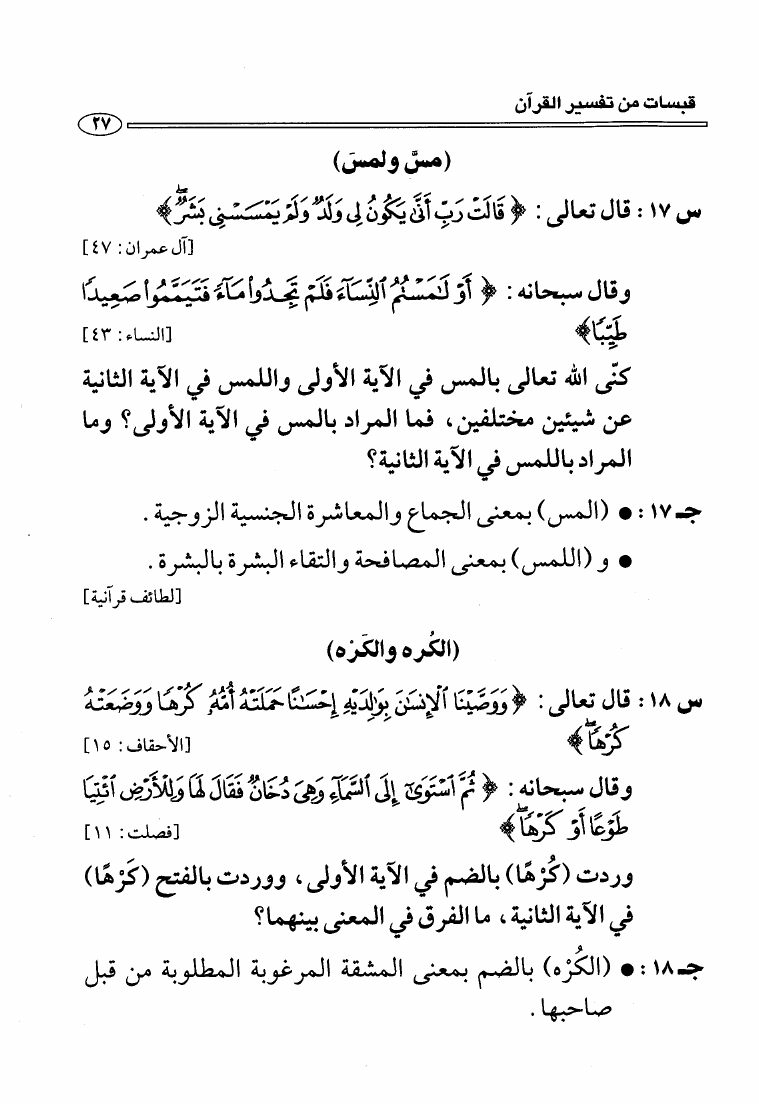 قبسات من تفسير القرآن
٢٧
(مسَّ ولمسَ)
س ١٧ : قال تعالى : ﴿ قَالَتْ رَبِّ أَنَّىٰ يَكُونُ لِى وَلَدٌ وَلَمْ يَمْسَسْنِى بَشَرٌۖ ﴾
[آل عمران : ٤٧]
وقال سبحانه : ﴿ أَوْ لَٰمَسْتُمُ ٱلنِّسَآءَ فَلَمْ تَجِدُوا۟ مَآءً فَتَيَمَّمُوا۟ صَعِيدًا
طَيِّبًا ﴾
[النساء : ٤٣]
كنّى الله تعالى بالمس في الآية الأولى واللمس في الآية الثانية
عن شيئين مختلفين، فما المراد بالمس في الآية الأولى؟ وما
المراد باللمس في الآية الثانية؟
جـ ١٧ : ● (المس) بمعنى الجماع والمعاشرة الجنسية الزوجية .
● و (اللمس) بمعنى المصافحة والتقاء البشرة بالبشرة .
[لطائف قرآنية]
(الكُره والكَرْه)
س ١٨ : قال تعالى : ﴿ وَوَصَّيْنَا ٱلْإِنسَٰنَ بِوَٰلِدَيْهِ إِحْسَٰنًا حَمَلَتْهُ أُمُّهُۥ كُرْهًا وَوَضَعَتْهُ
كُرْهًاۖ ﴾
[الأحقاف : ١٥]
وقال سبحانه : ﴿ ثُمَّ ٱسْتَوَىٰٓ إِلَى ٱلسَّمَآءِ وَهِىَ دُخَانٌ فَقَالَ لَهَا وَلِلْأَرْضِ ٱئْتِيَا
طَوْعًا أَوْ كَرْهًاۖ ﴾
[فصلت : ١١]
وردت (كُرْهًا) بالضم في الآية الأولى، ووردت بالفتح (كَرْهًا)
في الآية الثانية، ما الفرق في المعنى بينهما؟
جـ ١٨ : ● (الكُرْه) بالضم بمعنى المشقة المرغوبة المطلوبة من قبل
صاحبها .